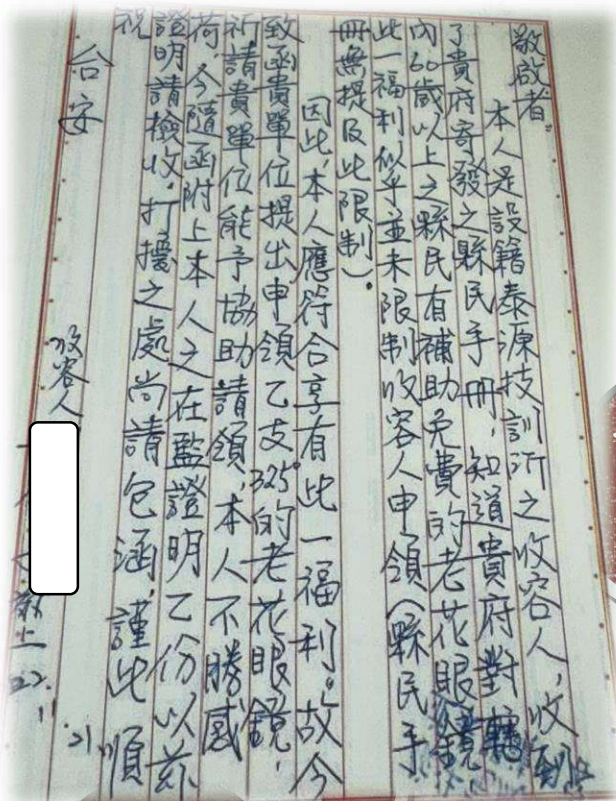 敬啟者
本人是設籍泰源技訓所之收容人，收到
了貴府寄發之縣民手冊，知道貴府對轄
內60歲以上之縣民有補助免費的老花眼鏡
此一福利似乎並未限制收容人申領（縣民手
冊無提及此限制）。
因此，本人應符合享有此一福利。故今
致函貴單位提出申領乙支325°的老花眼鏡，
祈請貴單位能予協助請領，本人不勝感
荷，今隨函附上本人之在監證明乙份以茲
證明請檢收，打擾之處尚請包涵，謹此 順
祝
台安
收容人
敬上